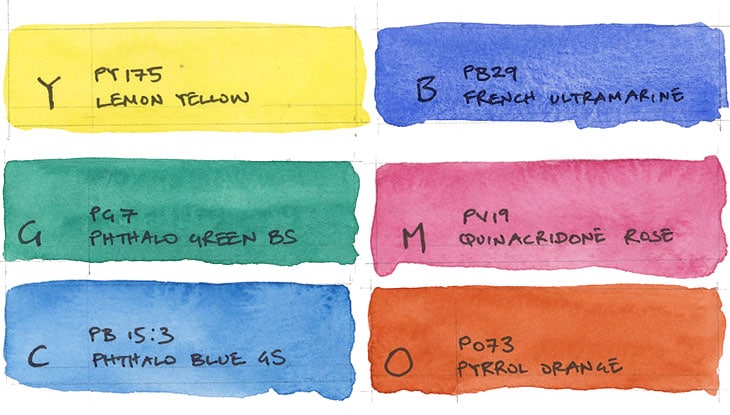 Y
PY175
LEMON YELLOW
B
PB29
FRENCH ULTRAMARINE
G
PG7
PHTHALO GREEN BS
M
PV19
QUINACRIDONE ROSE
C
PB 15:3
PHTHALO BLUE GS
O
PO73
PYRROL ORANGE